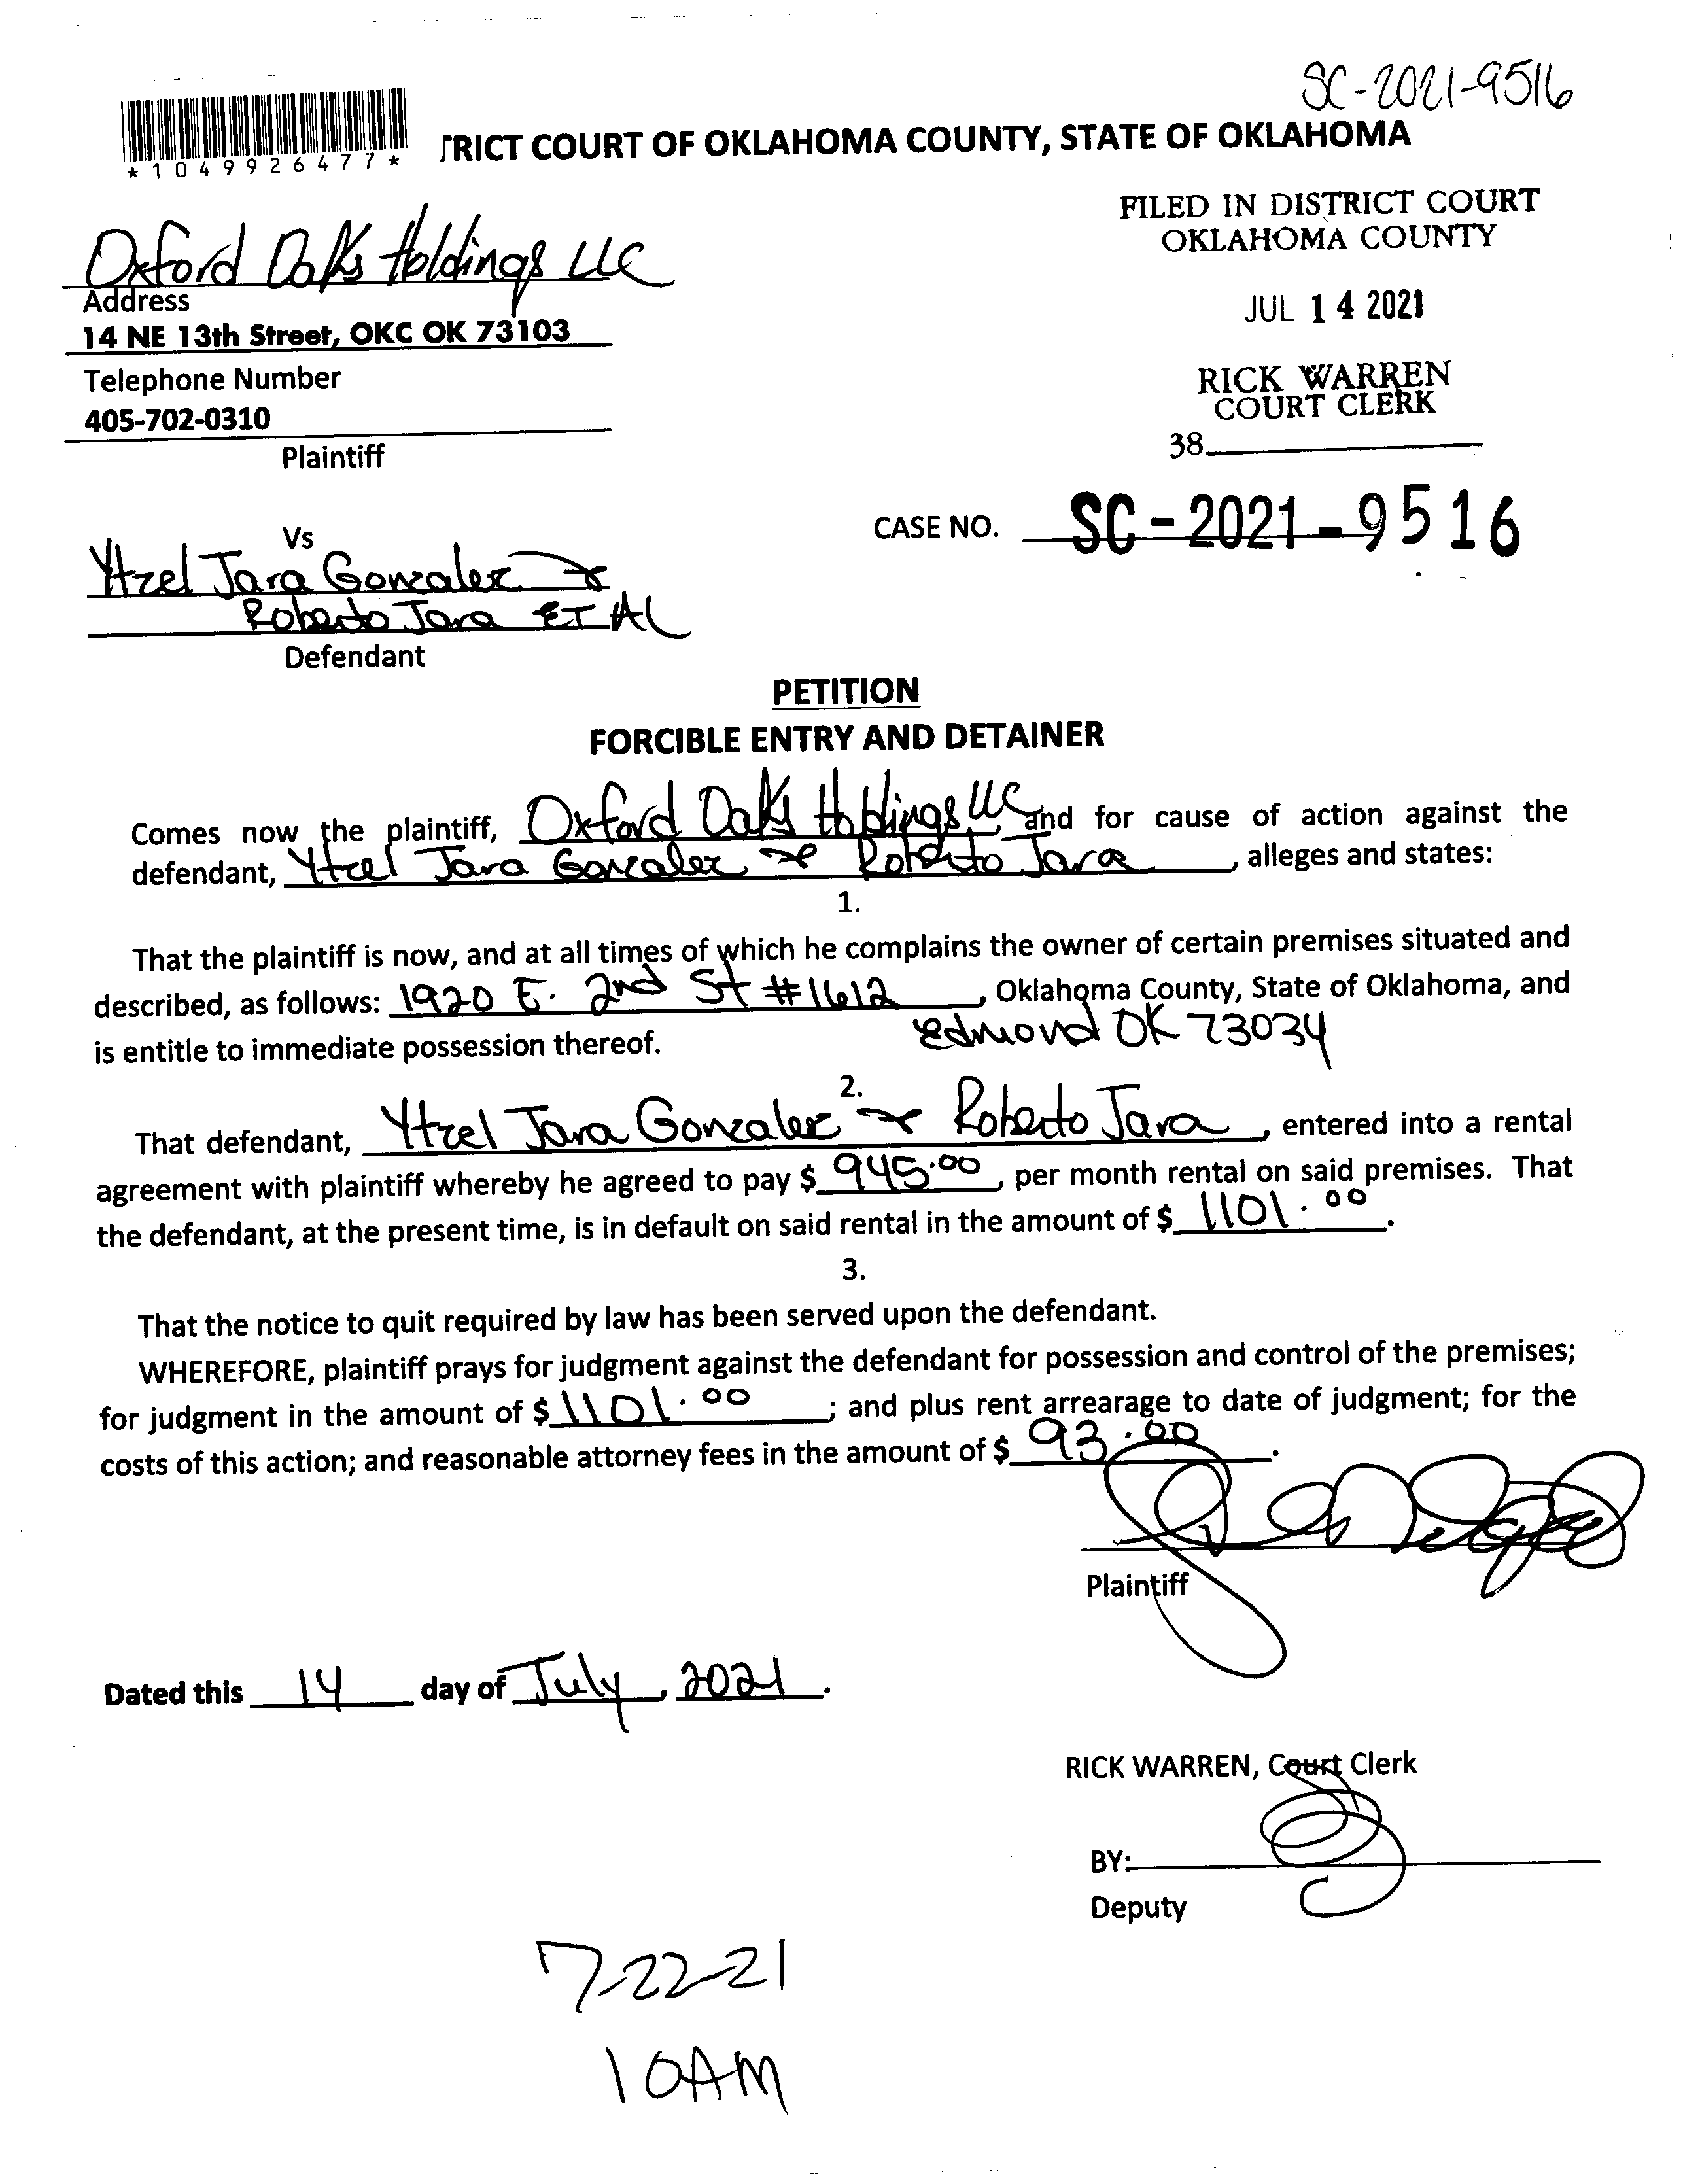 SC-2021-9516
*1049926477*
TRICT COURT OF OKLAHOMA COUNTY, STATE OF OKLAHOMA
FILED IN DISTRICT COURT
OKLAHOMA COUNTY
JUL 14 2021
RICK WARREN
COURT CLERK
38
Oxford Oaks Holdings LLC
Address
14 NE 13th Street, OKC OK 73103
Telephone Number
405-702-0310
Plaintiff
Vs
CASE NO. SC-2021-9516
Ytzel Jara Gonzalez &
Roberto Jara ET AL
Defendant
PETITION
FORCIBLE ENTRY AND DETAINER
Comes now the plaintiff, Oxford Oaks Holdings LLC, and for cause of action against the
defendant, Ytzel Jara Gonzalez & Roberto Jara, alleges and states:
1.
That the plaintiff is now, and at all times of which he complains the owner of certain premises situated and
described, as follows: 1920 E. 2nd St #1612, Oklahoma County, State of Oklahoma, and
Edmond OK 73034
is entitle to immediate possession thereof.
2.
That defendant, Ytzel Jara Gonzalez & Roberto Jara, entered into a rental
agreement with plaintiff whereby he agreed to pay $ 945.00, per month rental on said premises. That
the defendant, at the present time, is in default on said rental in the amount of $ 1101.00.
3.
That the notice to quit required by law has been served upon the defendant.
WHEREFORE, plaintiff prays for judgment against the defendant for possession and control of the premises;
for judgment in the amount of $ 1101.00; and plus rent arrearage to date of judgment; for the
costs of this action; and reasonable attorney fees in the amount of $ 93.00.
Plaintiff
Dated this 14 day of July, 2021.
RICK WARREN, Court Clerk
BY:
Deputy
7-22-21
10AM